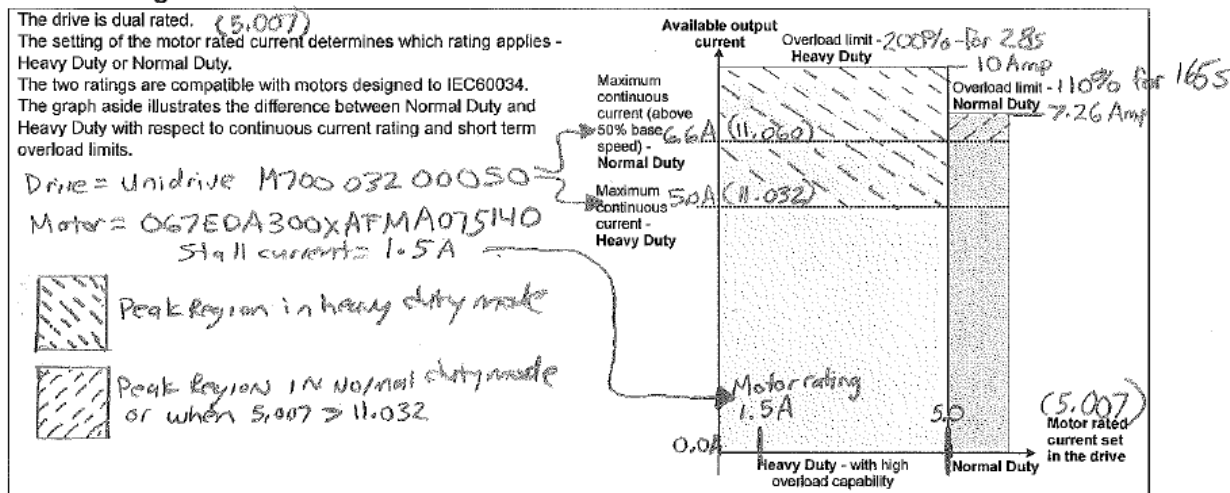 The drive is dual rated. (5.007)
The setting of the motor rated current determines which rating applies -
Heavy Duty or Normal Duty.
The two ratings are compatible with motors designed to IEC60034.
The graph aside illustrates the difference between Normal Duty and
Heavy Duty with respect to continuous current rating and short term
overload limits.
Drive = Unidrive M700 032 00050
Motor = 067EDA300XAFMA075140
Stall current = 1.5A
Peak Region in heavy duty mode
Peak Region IN Normal duty mode
or when 5.007 > 11.032
Available output
current
Overload limit - 200% - for 28s
Heavy Duty
10 Amp
Overload limit - 110% for 165s
Normal Duty
7.26 Amp
Maximum
continuous
current (above
50% base
speed) -
Normal Duty
6.6A (11.060)
Maximum
continuous
current -
Heavy Duty
5.0A (11.032)
Motor rating
1.5A
5.0
0.0A
(5.007)
Motor rated
current set
in the drive
Heavy Duty - with high
overload capability
Normal Duty